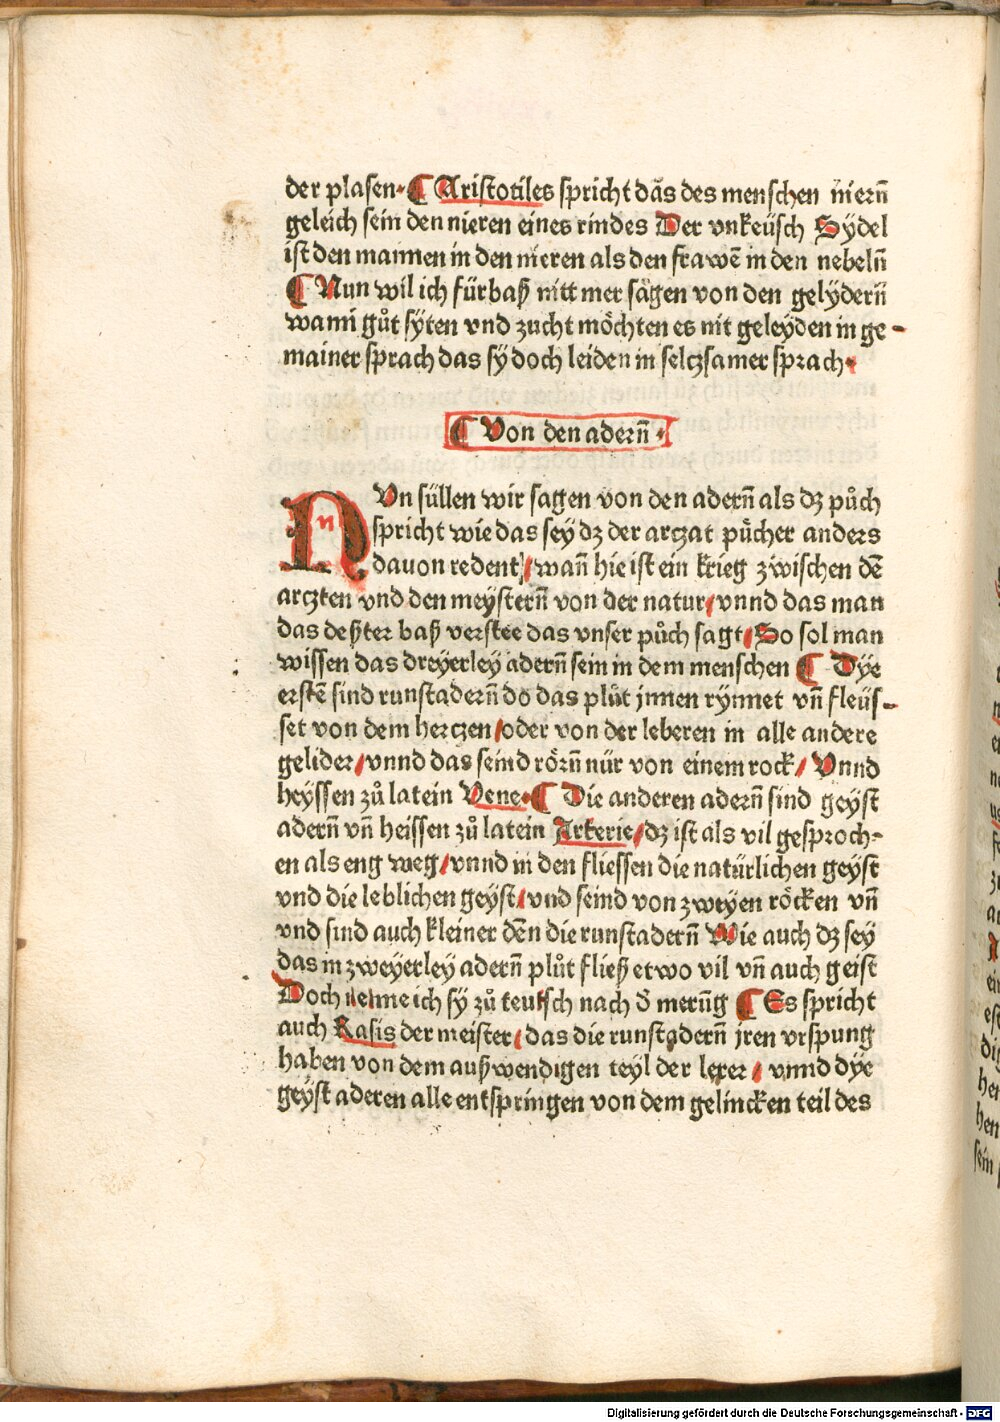 der plasen · ¶ Aristotiles spricht das des menschen niern̄
geleich sein den nieren eines rindes Der vnkeüsch Sydel
ist den mannen in den nieren als den frawē in den nebeln̄
¶ Nun wil ich fürbaß nitt mer sagen von den gelydern̄
wann gůt syten vnd zucht möchten es nit geleyden in ge-
mainer sprach das sy doch leiden in seltzsamer sprach ·
¶ Von den adern̄ ·
NVn süllen wir sagen von den adern̄ als dz půch
spricht wie das sey dz der artzat půcher anders
dauon redent / wañ hie ist ein krieg zwischen dē
artzten vnd den meystern̄ von der natur / vnnd das man
das deßter baß verstee das vnser půch sagt / So sol man
wissen das dreyerley adern̄ sein in dem menschen ¶ Dye
erstē sind runstadern̄ do das plůt jnnen rynnet vñ fleüs-
set von dem hertzen / oder von der leberen in alle andere
gelider / vnnd das seind rörn̄ nür von einem rock / Vnnd
heyssen zů latein Vene · ¶ Die anderen adern̄ sind geyst
adern̄ vñ heissen zů latein Arterie / dz ist als vil gesproch-
en als eng weg / vnnd in den fliessen die natürlichen geyst
vnd die leblichen geyst / vnd seind von zweyen röcken vñ
vnd sind auch kleiner dēn die runstadern̄ Wie auch dz sey
das in zweyerley adern̄ plůt fließ etwo vil vñ auch geist
Doch nenne ich sy zů teutsch nach d̄ merūg ¶ Es spricht
auch Rasis der meister / das die runstadern̄ jren vrspung
haben von dem außwendigen teyl der lerer / vnnd dye
geyst aderen alle entspringen von dem gelincken teil des
Digitalisierung gefördert durch die Deutsche Forschungsgemeinschaft - DFG